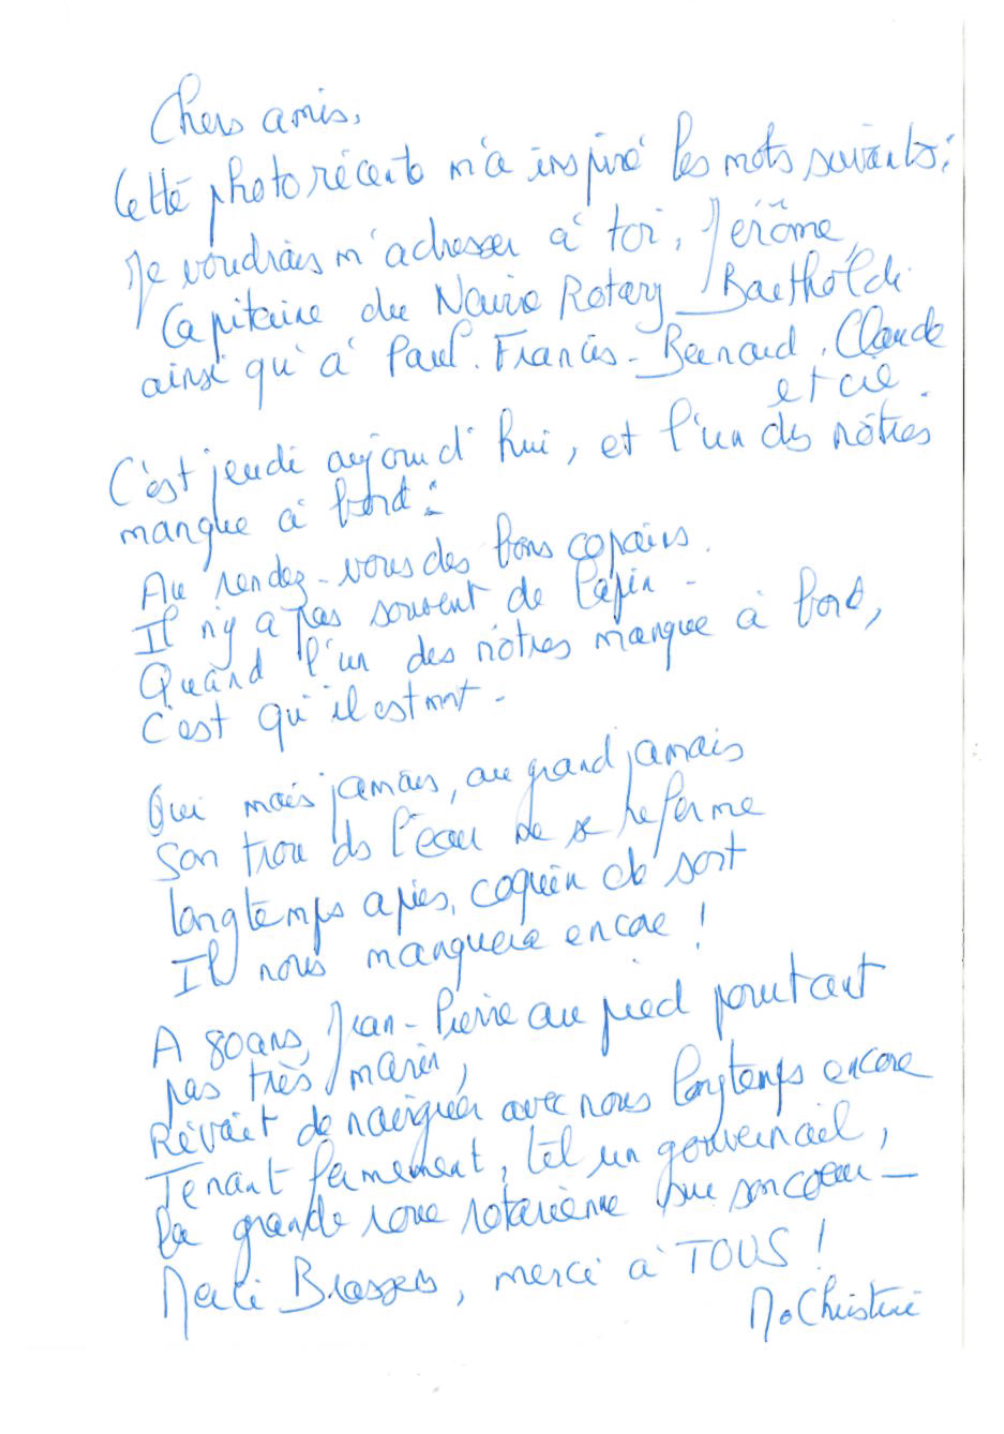 Chers amis,
Cette photo récente m'a inspiré les mots suivants :
Je voudrais m'adresser à toi, Jérôme,
Capitaine du Navire Rotary Bartholdi
ainsi qu'à Paul. Francis - Bernard, Claude
et cie.
C'est jeudi aujourd'hui, et l'un des nôtres
manque à bord :
Au rendez-vous des bons copains.
Il n'y a pas souvent de lapin -
Quand l'un des nôtres manque à bord,
C'est qu'il est mort -
Oui mais jamais, au grand jamais
Son trou ds l'eau ne se referme
Longtemps après, coquin de sort
Il nous manquera encore !
A 80 ans, Jean-Pierre au pied pourtant
pas très marin,
Rêvait de naviguer avec nous longtemps encore
Tenant fermement, tel un gouvernail,
la grande roue rotarienne sur son coeur -
Merci, merci à TOUS !
M.Christine